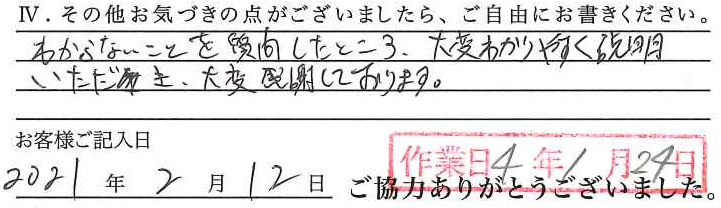 Ⅳ．その他お気づきの点がございましたら、ご自由にお書きください。
わからないことを質問したところ、大変わかりやすく説明
いただき、大変感謝しております。
お客様ご記入日
作業日4年1月24日
2021年2月12日 ご協力ありがとうございました。